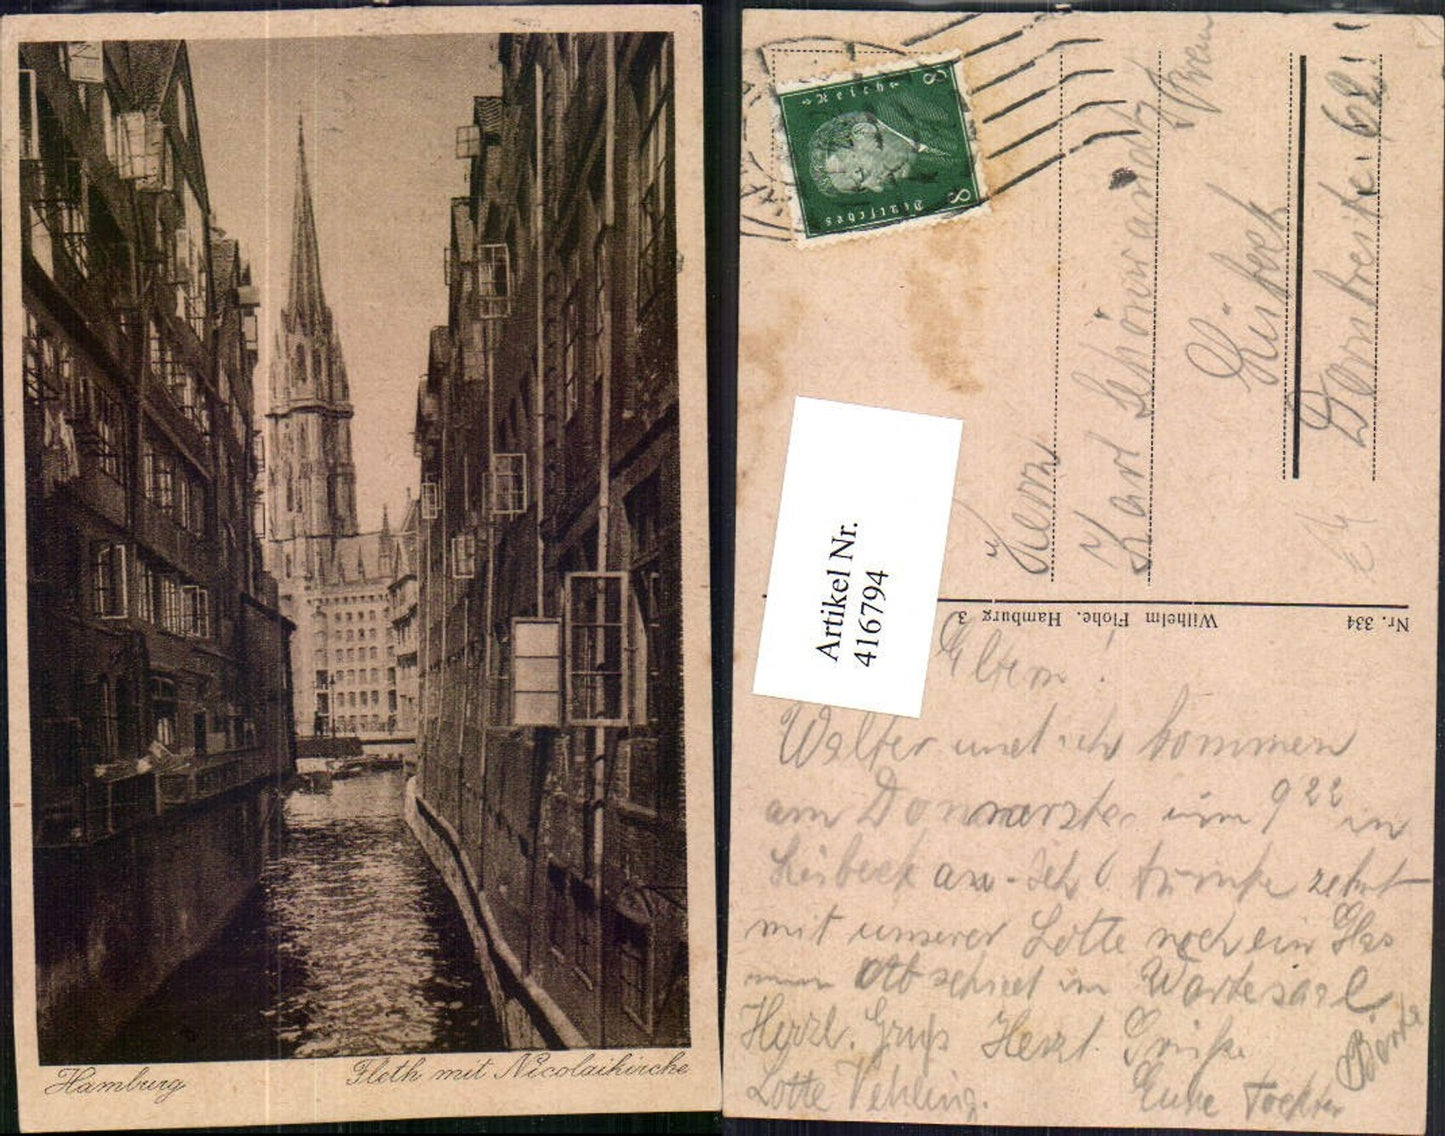 Hamburg
Fleth mit Nicolaikirche
8
8
Deutsches
Reich
Artikel Nr.
416794
Herrn
Karl
Lübeck
62
Wilhelm Flohe, Hamburg 3
Nr. 334
Eltern!
Walter und ich kommen
am um 9 22 in
Lübeck an. Ich trinke
mit unserer Lotte noch ein Glas
zum Abschied im Wartesaal.
Herzl. Gruß Herzl. Grüße
Lotte Vehling. Eure Tochter